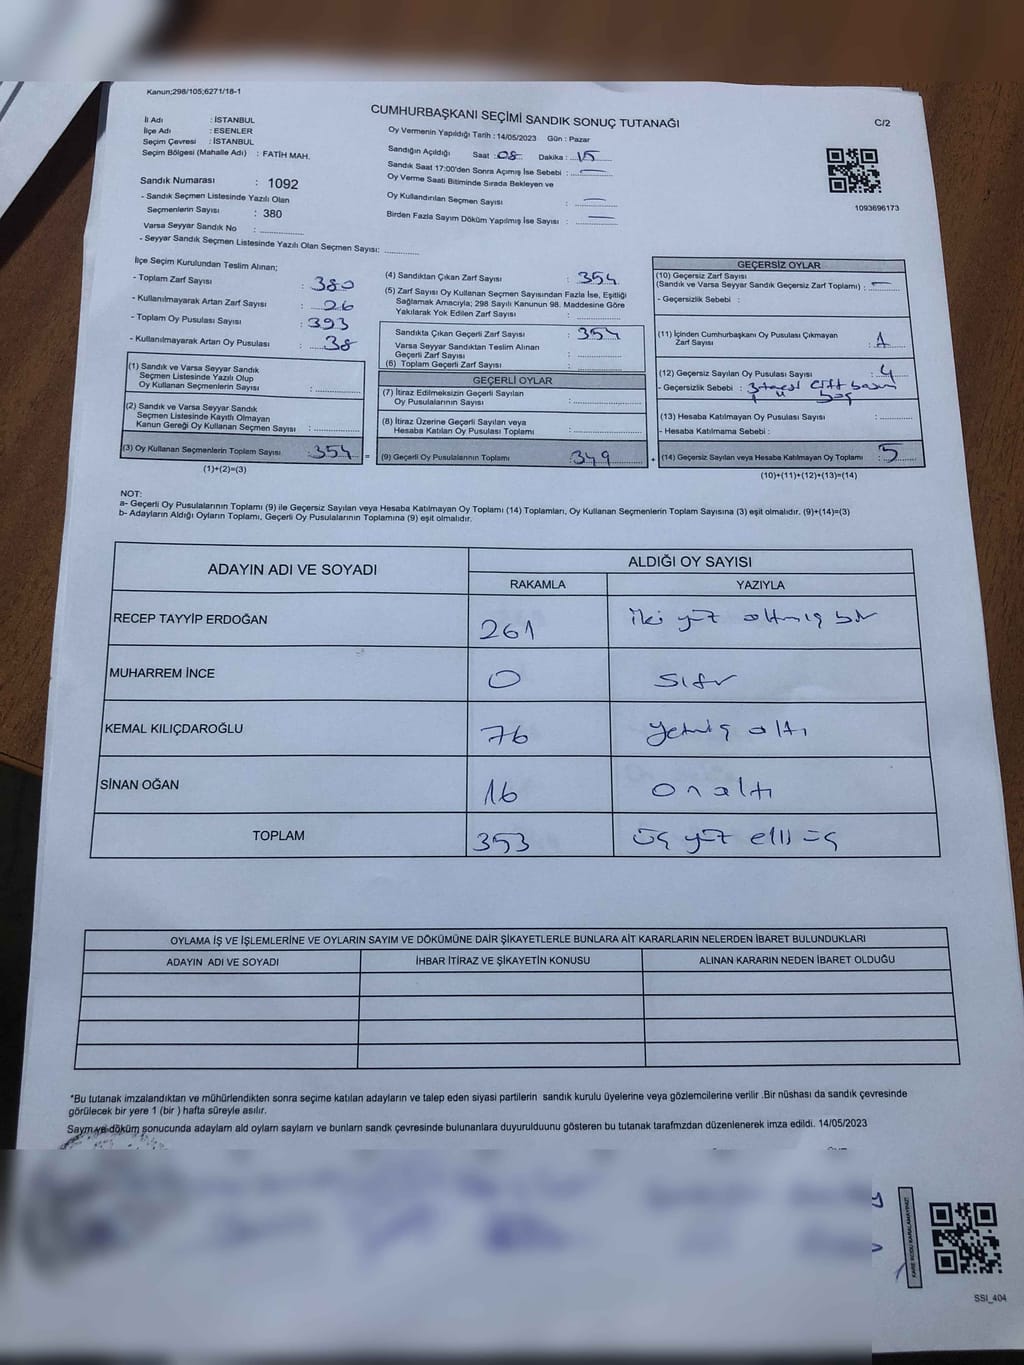 Kanun;298/105;6271/18-1
CUMHURBAŞKANI SEÇİMİ SANDIK SONUÇ TUTANAĞI
C/2
İl Adı : İSTANBUL
İlçe Adı : ESENLER
Seçim Çevresi : İSTANBUL
Seçim Bölgesi (Mahalle Adı) : FATİH MAH.
Oy Vermenin Yapıldığı Tarih : 14/05/2023 Gün : Pazar
Sandığın Açıldığı Saat : 08 Dakika : 15
Sandık Saat 17:00'den Sonra Açımış İse Sebebi : —
Oy Verme Saati Bitiminde Sırada Bekleyen ve
Oy Kullandırılan Seçmen Sayısı : —
Birden Fazla Sayım Döküm Yapılmış İse Sayısı : —
1093696173
Sandık Numarası : 1092
- Sandık Seçmen Listesinde Yazılı Olan
Seçmenlerin Sayısı : 380
Varsa Seyyar Sandık No :
- Seyyar Sandık Seçmen Listesinde Yazılı Olan Seçmen Sayısı:
İlçe Seçim Kurulundan Teslim Alınan;
- Toplam Zarf Sayısı : 380
- Kullanılmayarak Artan Zarf Sayısı : 26
- Toplam Oy Pusulası Sayısı : 393
- Kullanılmayarak Artan Oy Pusulası : 38
(1) Sandık ve Varsa Seyyar Sandık
Seçmen Listesinde Yazılı Olup
Oy Kullanan Seçmenlerin Sayısı :
(2) Sandık ve Varsa Seyyar Sandık
Seçmen Listesinde Kayıtlı Olmayan
Kanun Gereği Oy Kullanan Seçmen Sayısı :
(3) Oy Kullanan Seçmenlerin Toplam Sayısı : 354
(1)+(2)=(3)
(4) Sandıktan Çıkan Zarf Sayısı : 354
(5) Zarf Sayısı Oy Kullanan Seçmen Sayısından Fazla İse, Eşitliği
Sağlamak Amacıyla; 298 Sayılı Kanunun 98. Maddesine Göre
Yakılarak Yok Edilen Zarf Sayısı :
Sandıkta Çıkan Geçerli Zarf Sayısı : 354
Varsa Seyyar Sandıktan Teslim Alınan
Geçerli Zarf Sayısı :
(6) Toplam Geçerli Zarf Sayısı :
GEÇERLİ OYLAR
(7) İtiraz Edilmeksizin Geçerli Sayılan
Oy Pusulalarının Sayısı :
(8) İtiraz Üzerine Geçerli Sayılan veya
Hesaba Katılan Oy Pusulası Toplamı :
= (9) Geçerli Oy Pusulalarının Toplamı : 349
GEÇERSİZ OYLAR
(10) Geçersiz Zarf Sayısı
(Sandık ve Varsa Seyyar Sandık Geçersiz Zarf Toplamı) : —
- Geçersizlik Sebebi :
(11) İçinden Cumhurbaşkanı Oy Pusulası Çıkmayan
Zarf Sayısı : 1
(12) Geçersiz Sayılan Oy Pusulası Sayısı : 4
- Geçersizlik Sebebi : 3 tanesi çift basım
boş
(13) Hesaba Katılmayan Oy Pusulası Sayısı :
- Hesaba Katılmama Sebebi :
+ (14) Geçersiz Sayılan veya Hesaba Katılmayan Oy Toplamı : 5
(10)+(11)+(12)+(13)=(14)
NOT:
a- Geçerli Oy Pusulalarının Toplamı (9) ile Geçersiz Sayılan veya Hesaba Katılmayan Oy Toplamı (14) Toplamları, Oy Kullanan Seçmenlerin Toplam Sayısına (3) eşit olmalıdır. (9)+(14)=(3)
b- Adayların Aldığı Oyların Toplamı, Geçerli Oy Pusulalarının Toplamına (9) eşit olmalıdır.
ADAYIN ADI VE SOYADI
ALDIĞI OY SAYISI
RAKAMLA YAZIYLA
RECEP TAYYİP ERDOĞAN 261 iki yüz altmış bir
MUHARREM İNCE 0 sıfır
KEMAL KILIÇDAROĞLU 76 yetmiş altı
SİNAN OĞAN 16 onaltı
TOPLAM 353 üç yüz elli üç
OYLAMA İŞ VE İŞLEMLERİNE VE OYLARIN SAYIM VE DÖKÜMÜNE DAİR ŞİKAYETLERLE BUNLARA AİT KARARLARIN NELERDEN İBARET BULUNDUKLARI
ADAYIN ADI VE SOYADI İHBAR İTİRAZ VE ŞİKAYETİN KONUSU ALINAN KARARIN NEDEN İBARET OLDUĞU
*Bu tutanak imzalandıktan ve mühürlendikten sonra seçime katılan adayların ve talep eden siyasi partilerin sandık kurulu üyelerine veya gözlemcilerine verilir .Bir nüshası da sandık çevresinde
görülecek bir yere 1 (bir ) hafta süreyle asılır.
Saym ve döküm sonucunda adaylarn ald oylarn saylarn ve bunlarn sandk çevresinde bulunanlara duyurulduunu gösteren bu tutanak tarafmzdan düzenlenerek imza edildi. 14/05/2023
KARE KODU KARALAMAYINIZ!
SSI_404